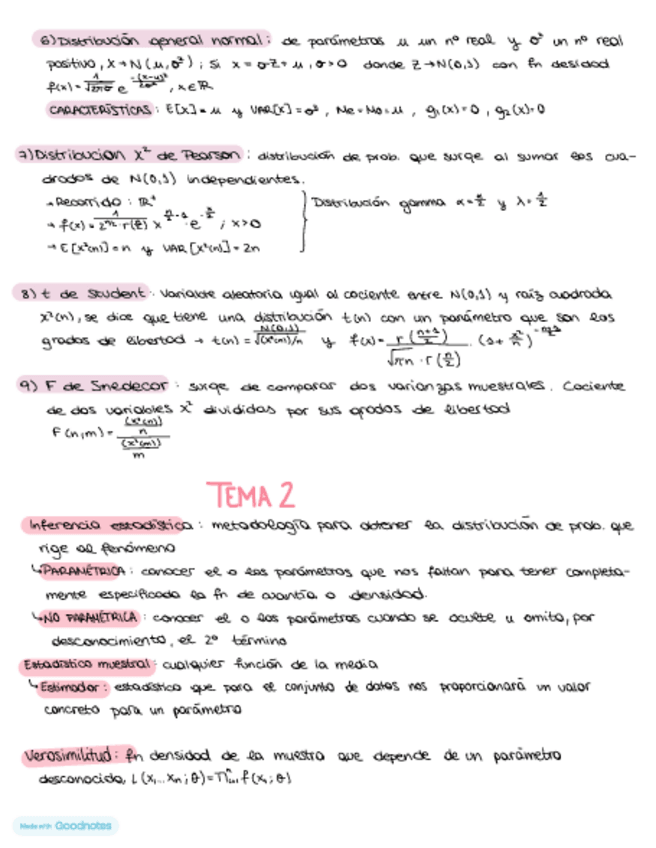 6) Distribución general normal: de parámetros μ un nº real y σ² un nº real
positivo, X→N(μ,σ²); si x = σ·Z+μ, σ>0 donde Z→N(0,1) con fn desidad
f(x) = 1/√2πσ e^(-(x-μ)²/2σ²), x∈ℝ
CARACTERÍSTICAS: E[X]=μ y VAR[X]=σ², Me=Mo=μ, g₁(x)=0, g₂(x)=0
7) Distribucion χ² de Pearson: distribución de prob. que surge al sumar los cua-
drados de N(0,1) independientes.
→ Recorrido: ℝ⁺
Distribución gamma α=n/2 y λ=1/2
→ f(x) = 1/2^(n/2)·Γ(n/2) x^(n/2-1)·e^(-x/2); x>0
→ E[χ²(n)]=n y VAR[χ²(n)]=2n
8) t de Student: Variable aleatoria igual al cociente entre N(0,1) y raíz cuadrada
χ²(n), se dice que tiene una distribución t(n) con un parámetro que son los
grados de libertad → t(n) = N(0,1)/√(χ²(n))/n y f(x) = Γ(n+1/2)/√πn·Γ(n/2) · (1+x²/n)^(-n+1/2)
9) F de Snedecor: surge de comparar dos varianzas muestrales. Cociente
de dos variables χ² divididas por sus grados de libertad
F(n,m) = (χ²(n))/n / (χ²(m))/m
TEMA 2
Inferencia estadística: metodología para obtener la distribución de prob. que
rige al fenómeno
↳ PARAMÉTRICA: conocer el o los parámetros que nos faltan para tener completa-
mente especificada la fn de cuantía o densidad.
↳ NO PARAMÉTRICA: conocer el o los parámetros cuando se oculte u omita, por
desconocimiento, el 2º término
Estadístico muestral: cualquier función de la media
↳ Estimador: estadístico que para el conjunto de datos nos proporcionará un valor
concreto para un parámetro
Verosimilitud: fn densidad de la muestra que depende de un parámetro
desconocido, L(x₁...xₙ;θ)=Πⁿᵢ₌₁ f(xᵢ;θ)
Made with Goodnotes